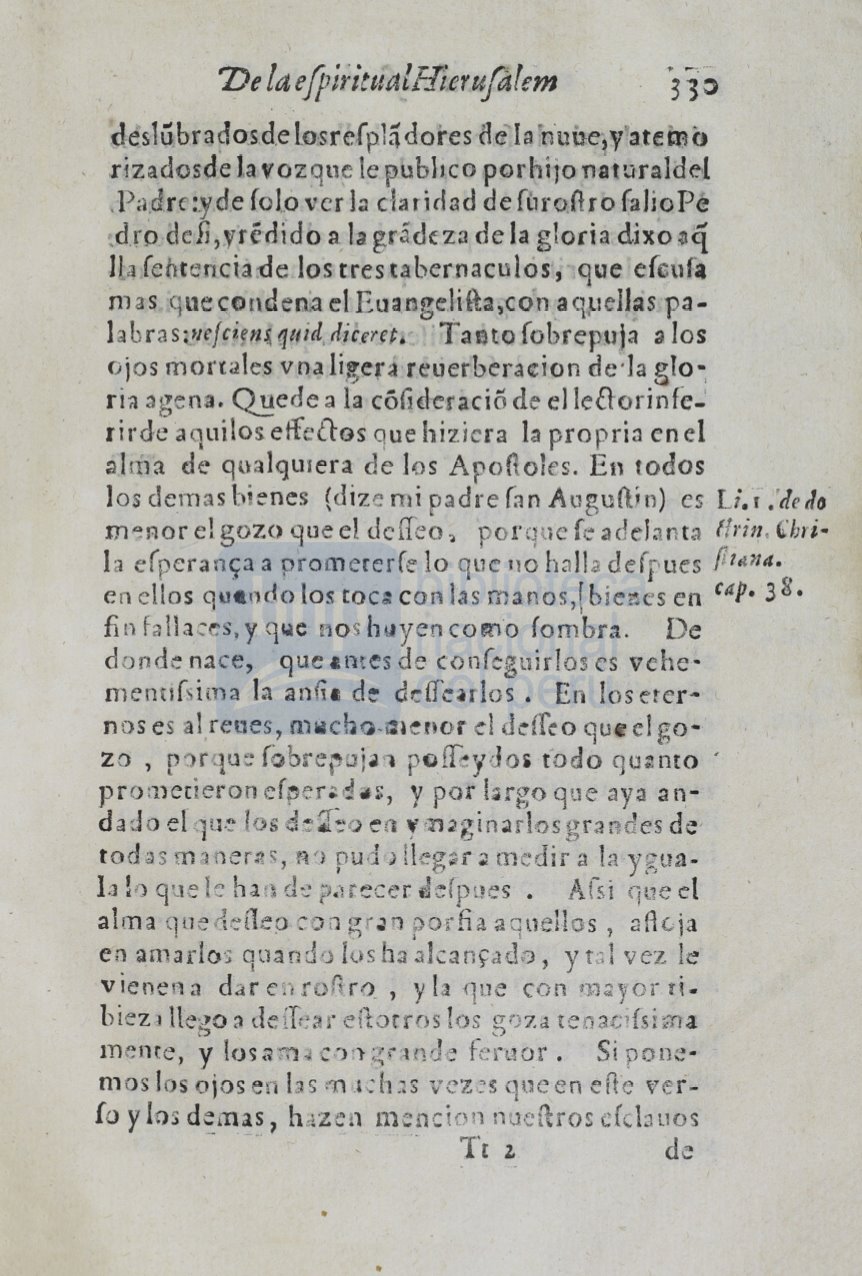 De la eſpiritual Hieruſalem 330
deslūbrados de los reſplādores de la nuue, y atemo
rizados de la voz que le publico por hijo natural del
Padre: y de ſolo ver la claridad de ſu roſtro ſalio Pe
dro de ſi, y rēdido a la grādeza de la gloria dixo aq̃
lla ſentencia de los tres tabernaculos, que eſcuſa
mas que condena el Euangeliſta, con aquellas pa-
labras: neſciens quid diceret. Tanto ſobrepuja a los
ojos mortales vna ligera reuerberacion de la glo-
ria agena. Quede a la cōſideraciō de el lector infe-
rir de aqui los effectos que hiziera la propria en el
alma de qualquiera de los Apoſtoles. En todos
los demas bienes (dize mi padre ſan Auguſtin) es
menor el gozo que el deſſeo, porque ſe adelanta
la eſperança a prometerſe lo que no halla deſpues
en ellos quando los toca con las manos, bienes en
fin fallaces, y que nos huyen como ſombra. De
donde nace, que antes de conſeguirlos es vehe-
mentiſsima la anſia de deſſearlos. En los eter-
nos es al reues, mucho menor el deſſeo que el go-
zo, porque ſobrepujan poſſeydos todo quanto
prometieron eſperados, y por largo que aya an-
dado el que los deſſeo en ymaginarlos grandes de
todas maneras, no pudo llegar a medir a la ygua-
la lo que le han de parecer deſpues. Aſsi que el
alma que deſſeo con gran porfia aquellos, afloja
en amarlos quando los ha alcançado, y tal vez le
vienen a dar en roſtro, y la que con mayor ti-
bieza llego a deſſear eſtotros los goza tenaciſsima
mente, y los ama con grande feruor. Si pone-
mos los ojos en las muchas vezes que en eſte ver-
ſo y los demas, hazen mencion nueſtros eſclauos
Tt 2 de
Li. 1. de do
ctrin. Chri-
ſtiana.
cap. 38.
biblioteca
nacional
del perú